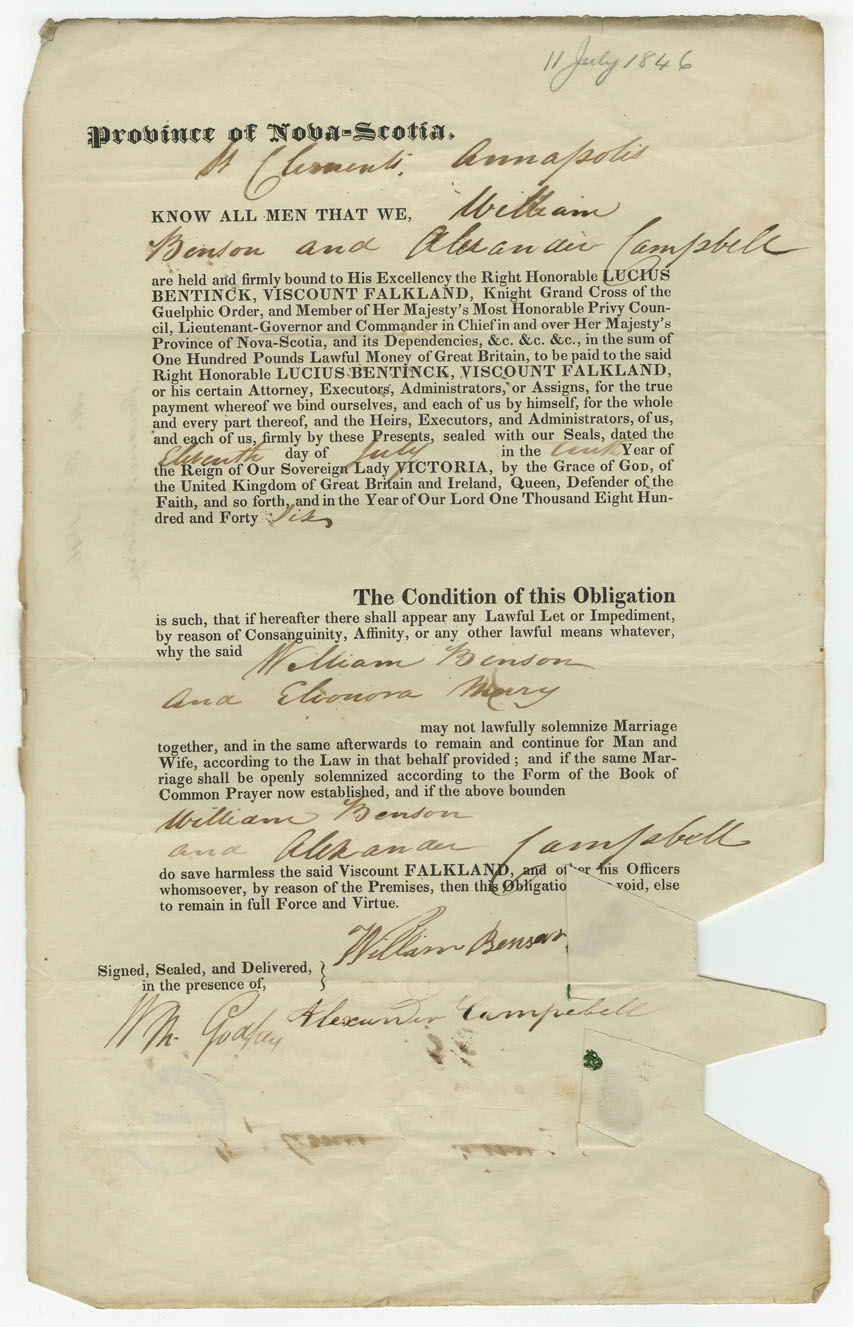 11 July 1846
Province of Nova-Scotia.
St Clements, Annapolis
KNOW ALL MEN THAT WE, William
Benson and Alexander Campbell
are held and firmly bound to His Excellency the Right Honorable LUCIUS
BENTINCK, VISCOUNT FALKLAND, Knight Grand Cross of the
Guelphic Order, and Member of Her Majesty's Most Honorable Privy Coun-
cil, Lieutenant-Governor and Commander in Chief in and over Her Majesty's
Province of Nova-Scotia, and its Dependencies, &c. &c. &c., in the sum of
One Hundred Pounds Lawful Money of Great Britain, to be paid to the said
Right Honorable LUCIUS BENTINCK, VISCOUNT FALKLAND,
or his certain Attorney, Executors, Administrators, or Assigns, for the true
payment whereof we bind ourselves, and each of us by himself, for the whole
and every part thereof, and the Heirs, Executors, and Administrators, of us,
and each of us, firmly by these Presents, sealed with our Seals, dated the
Eleventh day of July in the tenth Year of
the Reign of Our Sovereign Lady VICTORIA, by the Grace of GOD, of
the United Kingdom of Great Britain and Ireland, Queen, Defender of the
Faith, and so forth, and in the Year of Our Lord One Thousand Eight Hun-
dred and Forty Six
The Condition of this Obligation
is such, that if hereafter there shall appear any Lawful Let or Impediment,
by reason of Consanguinity, Affinity, or any other lawful means whatever,
why the said William Benson
and Eleonora Mary
may not lawfully solemnize Marriage
together, and in the same afterwards to remain and continue for Man and
Wife, according to the Law in that behalf provided; and if the same Mar-
riage shall be openly solemnized according to the Form of the Book of
Common Prayer now established, and if the above bounden
William Benson
and Alexander Campbell
do save harmless the said Viscount FALKLAND, and other his Officers
whomsoever, by reason of the Premises, then this Obligatio void, else
to remain in full Force and Virtue.
William Benson
Signed, Sealed, and Delivered,
in the presence of,
Alexander Campebell
Wm. Godfrey